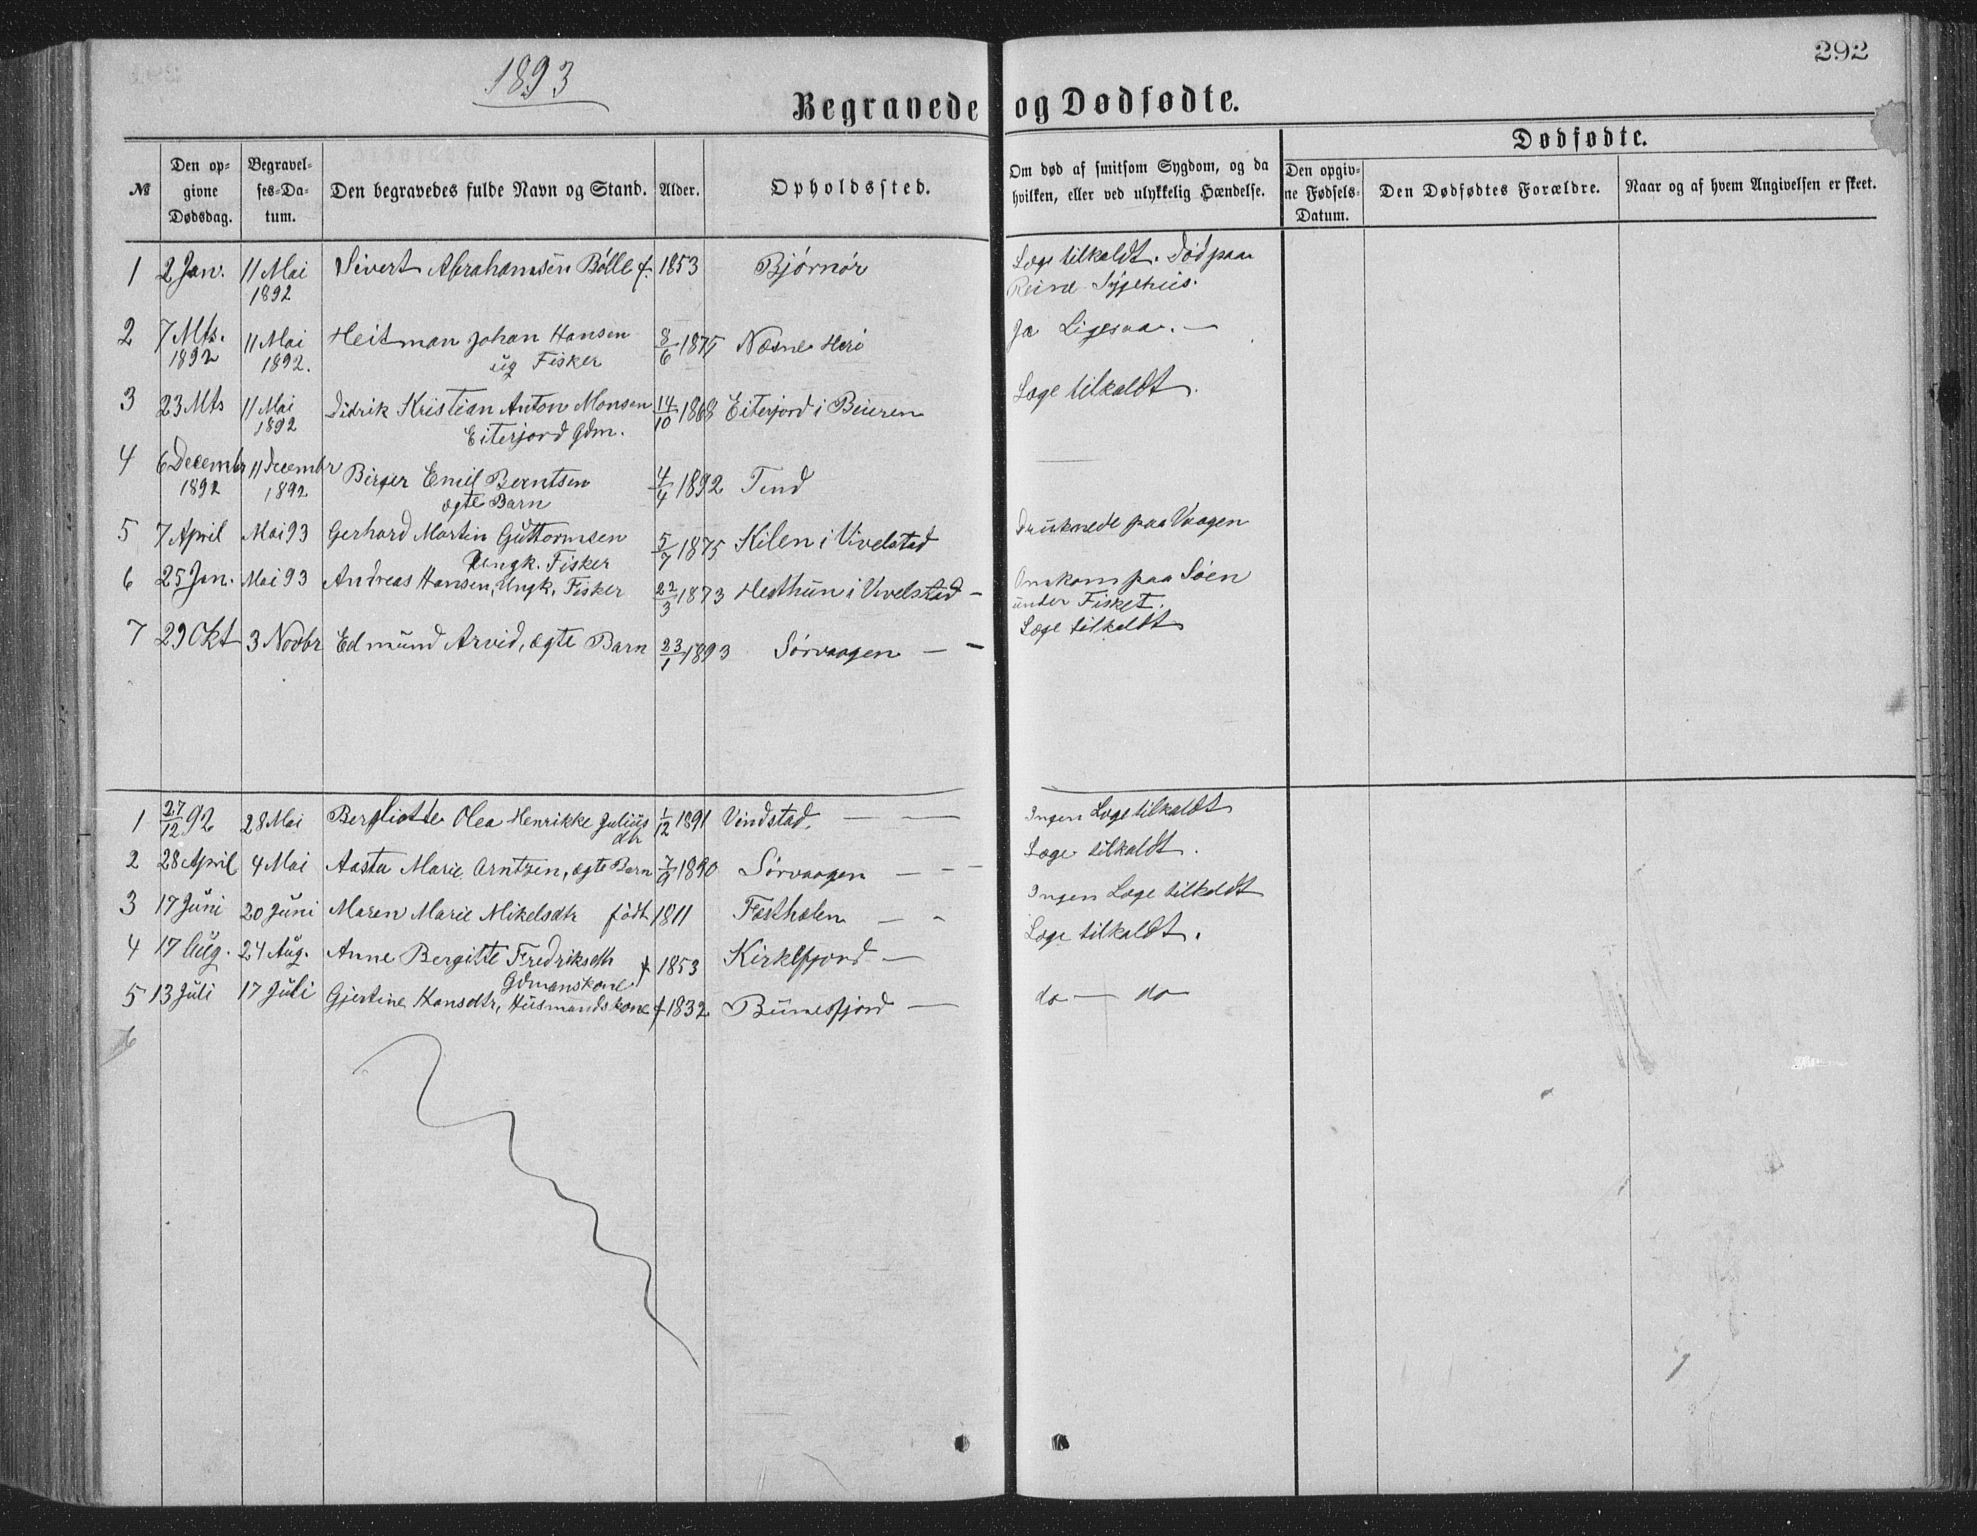 292
1893
Begravede og Dødfødte.
Dødfødte.
№
Den op-
givne
Dødsdag.
Begravel-
ses-Da-
tum.
Den begravedes fulde Navn og Stand.
Alder.
Opholdssted.
Om død af smitsom Sygdom, og da
hvilken, eller ved ulykkelig Hændelse.
Den opgiv-
ne Fødsels-
Datum.
Den Dødfødtes Forældre.
Naar og af hvem Angivelsen er skeet.
1 2 Jan. 11 Mai Sivert Abrahamsen Bølle f. 1853 Bjørnør Læge tilkaldt. Død paa
1892 Reine Sygehus.
2 7 Mts. 11 Mai Heitman Johan Hansen 8/6 1875 Næsne Herø Ja Ligesaa. —
1892 1892. ug Fisker
3 23 Mts 11 Mai Didrik Kristian Anton Monsen 14/10 1868 Eiterjord i Beieren Læge tilkaldt.
1892 Eiterjord Gdm.
4 6 Decembr 11 Decembr Birger Emil Berntsen 4/4 1892 Tind —
1892 1892 ægte Barn
5 7 April Mai 93 Gerhard Martin Guttormsen 5/7 1875 Kilen i Vivelstad Druknede paa Vaagen
Ungk. Fisker
6 25 Jan. Mai 93 Andreas Hansen, Ungk. Fisker 22/3 1873 Hesthun i Vivelstad — Omkom paa Søen
under Fisket.
7 29 Okt 3 Novbr Edmund Arvid, ægte Barn 23/1 1893 Sørvaagen — — Læge tilkaldt
1 27/12 92 28 Mai Bergliotte Olea Henrikke Julius 1/12 1891 Vindstad. — — Ingen Læge tilkaldt
dtr
2 28 April 4 Mai Aasta Marie Arntzen, ægte Barn 7/9 1890 Sørvaagen — — Læge tilkaldt.
3 17 Juni 20 Juni Maren Marie Mikelsdtr født 1811 Festhælen — - Ingen Læge tilkaldt
4 17 Aug. 24 Aug. Anne Bergitte Fredriksdtr f 1853 Kirkefjord — Læge tilkaldt.
Gdmanskone
5 13 Juli 17 Juli Gjertine Hansdtr, Husmandskone f 1832 Bunesfjord — do — do
6